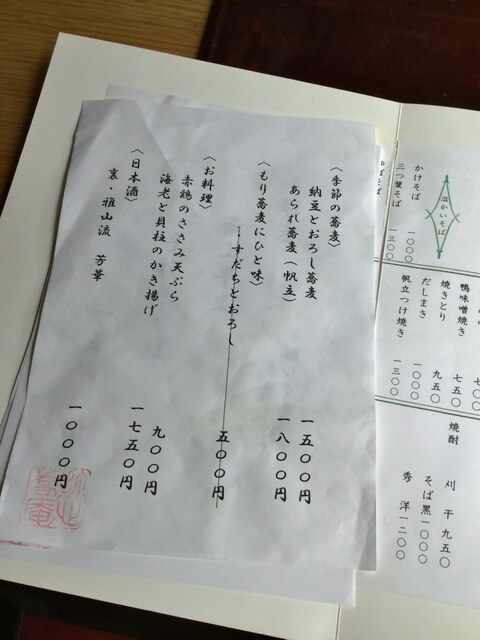 〈季節の蕎麦〉
納豆とおろし蕎麦 一五〇〇円
あられ蕎麦（帆立） 一八〇〇円
〈もり蕎麦にひと味〉
すだちとおろし 五〇〇円
〈お料理〉
赤鶏のささみ天ぷら 九〇〇円
海老と貝柱のかき揚げ 一七五〇円
〈日本酒〉
裏・雅山流 芳華 一〇〇〇円
温かいそば
かけそば 一〇〇〇
三つ葉そば 一三〇〇
鴨味噌焼き 七五〇
焼きとり 九五〇
だしまき 一〇〇〇
帆立つけ焼き 一三〇〇
焼酎
刈干 九五〇
そば黒 一〇〇〇
秀洋 一二〇〇